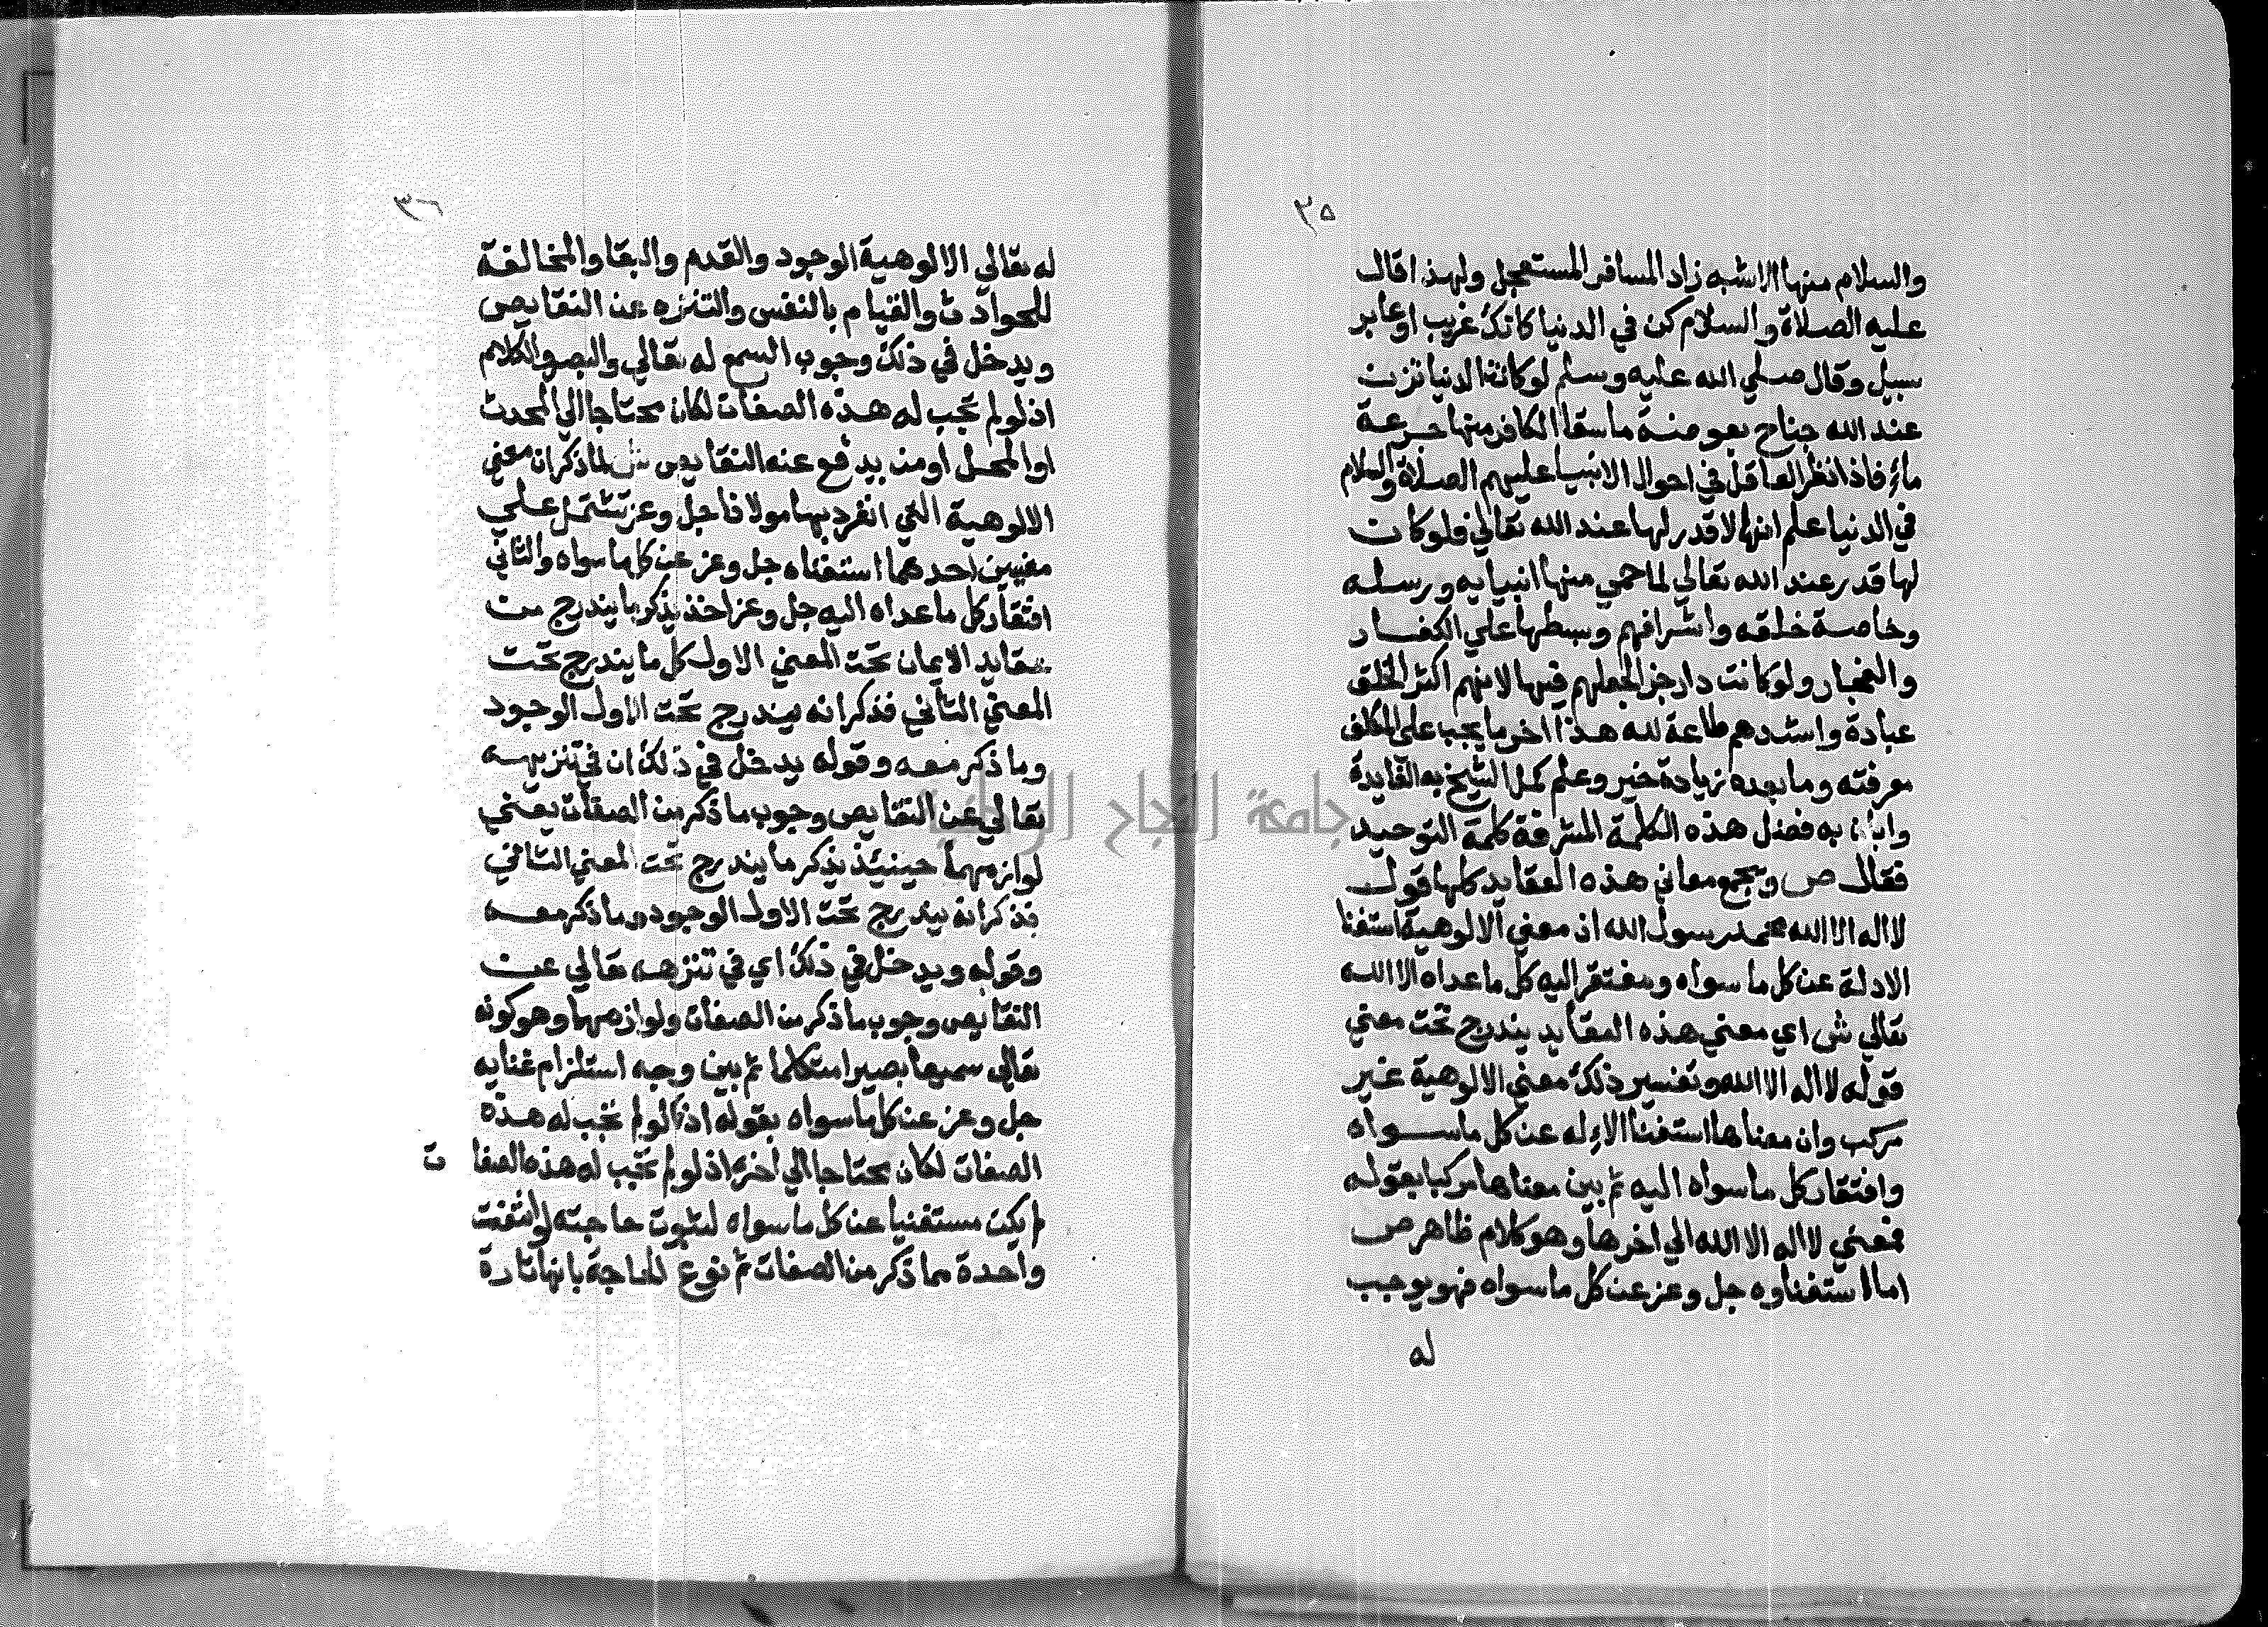 ٣٥
والسلام منها الا شبه زاد المسافر المستعجل ولهذا قال
عليه الصلاة والسلام كن في الدنيا كانك غريب او عابر
سبيل وقال صلي الله عليه وسلم لو كانت الدنيا تزن
عند الله جناح بعوضة ما سقا الكافر منها جرعة
ماء فاذا نظر العاقل في احوال الانبيا عليهم الصلاة والسلام
في الدنيا علم انها لا قدر لها عند الله تعالي فلو كان
لها قدر عند الله تعالي لما حمي منها انبيايه ورسله
وخاصة خلقه واشرافهم وبسطها علي الكفار
والفجار ولو كانت دار جزا لجعلهم فيها لانهم اكثر الخلق
عبادة واشدهم طاعة لله هذا اخر ما يجب علي المكلف
معرفته وما بعده زيادة خير وعلم كمل الشيخ به الفايدة
وابان به فضل هذه الكلمة المشرفة كلمة التوحيد
فقال ص ويجمع معاني هذه العقايد كلها قول
لا اله الا الله محمد رسول الله اذ معني الالوهية استغنا
الادلة عن كل ما سواه ومفتقر اليه كل ما عداه الا الله
تعالي ش اي معني هذه العقايد يندرج تحت معني
قوله لا اله الا الله وتفسير ذلك معني الالوهية غير
مركب وان معناها استغنا الاله عن كل ما سواه
وافتقار كل ما سواه اليه ثم بين معناها مركبا بقوله
فمعني لا اله الا الله الي اخرها وهو كلام ظاهر ص
اما استغناوه جل وعز عن كل ما سواه فهو يوجب
له
٣٦
له تعالي الالوهية الوجود والقدم والبقا والمخالفة
للحوادث والقيام بالنفس والتنزه عن النقايص
ويدخل في ذلك وجوب السمع له تعالي والبصر والكلام
اذ لو لم تجب له هذه الصفات لكان محتاجا الي المحدث
او المحل او من يدفع عنه النقايص ش لما ذكر ان معني
الالوهية التي انفرد بها مولانا جل وعز تشتمل علي
معنيين احدهما استغناه جل وعز عن كلما سواه والثاني
افتقار كل ما عداه اليه جل وعز اخذ يذكر ما يندرج من
عقايد الايمان تحت المعني الاول كل ما يندرج تحت
المعني الثاني فذكر انه يندرج تحت الاول الوجود
وما ذكر معه وقوله يدخل في ذلك ان في تنزيهه
تعالي عن النقايص وجوب ما ذكر من الصفات يعني
لوازمهما حينيذ يذكر ما يندرج تحت المعني الثاني
فذكر انه يندرج تحت الاول الوجود وما ذكر معه
وقوله ويدخل في ذلك اي في تنزهه تعالي عن
النقايص وجوب ما ذكر من الصفات ولوازمها وهو كونه
تعالي سميعا بصيرا متكلما ثم بين وجه استلزام غنايه
جل وعز عن كل ما سواه بقوله اذ لو لم تجب له هذه
الصفات لكان محتاجا الي اخره اذ لو لم تجب له هذه الصفات
لم يكن مستغنيا عن كل ما سواه لثبوت حاجته لو انتفت
واحدة مما ذكر من الصفات ثم نوع الحاجة بانها تارة